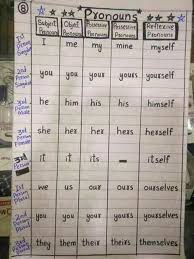 8 Pronouns
Subject Pronoun Object Pronoun Possessive Pronouns Possessive Pronouns Reflexive Pronouns
1st Person Singular I me my mine myself
2nd Person Singular you you your yours yourself
3rd Person Male he him his his himself
3rd Person Female she her her hers herself
3rd Person it it its - itself
1st Person Plural we us our ours ourselves
2nd Person Plural you you your yours yourselves
3rd Person Plural they them their theirs themselves